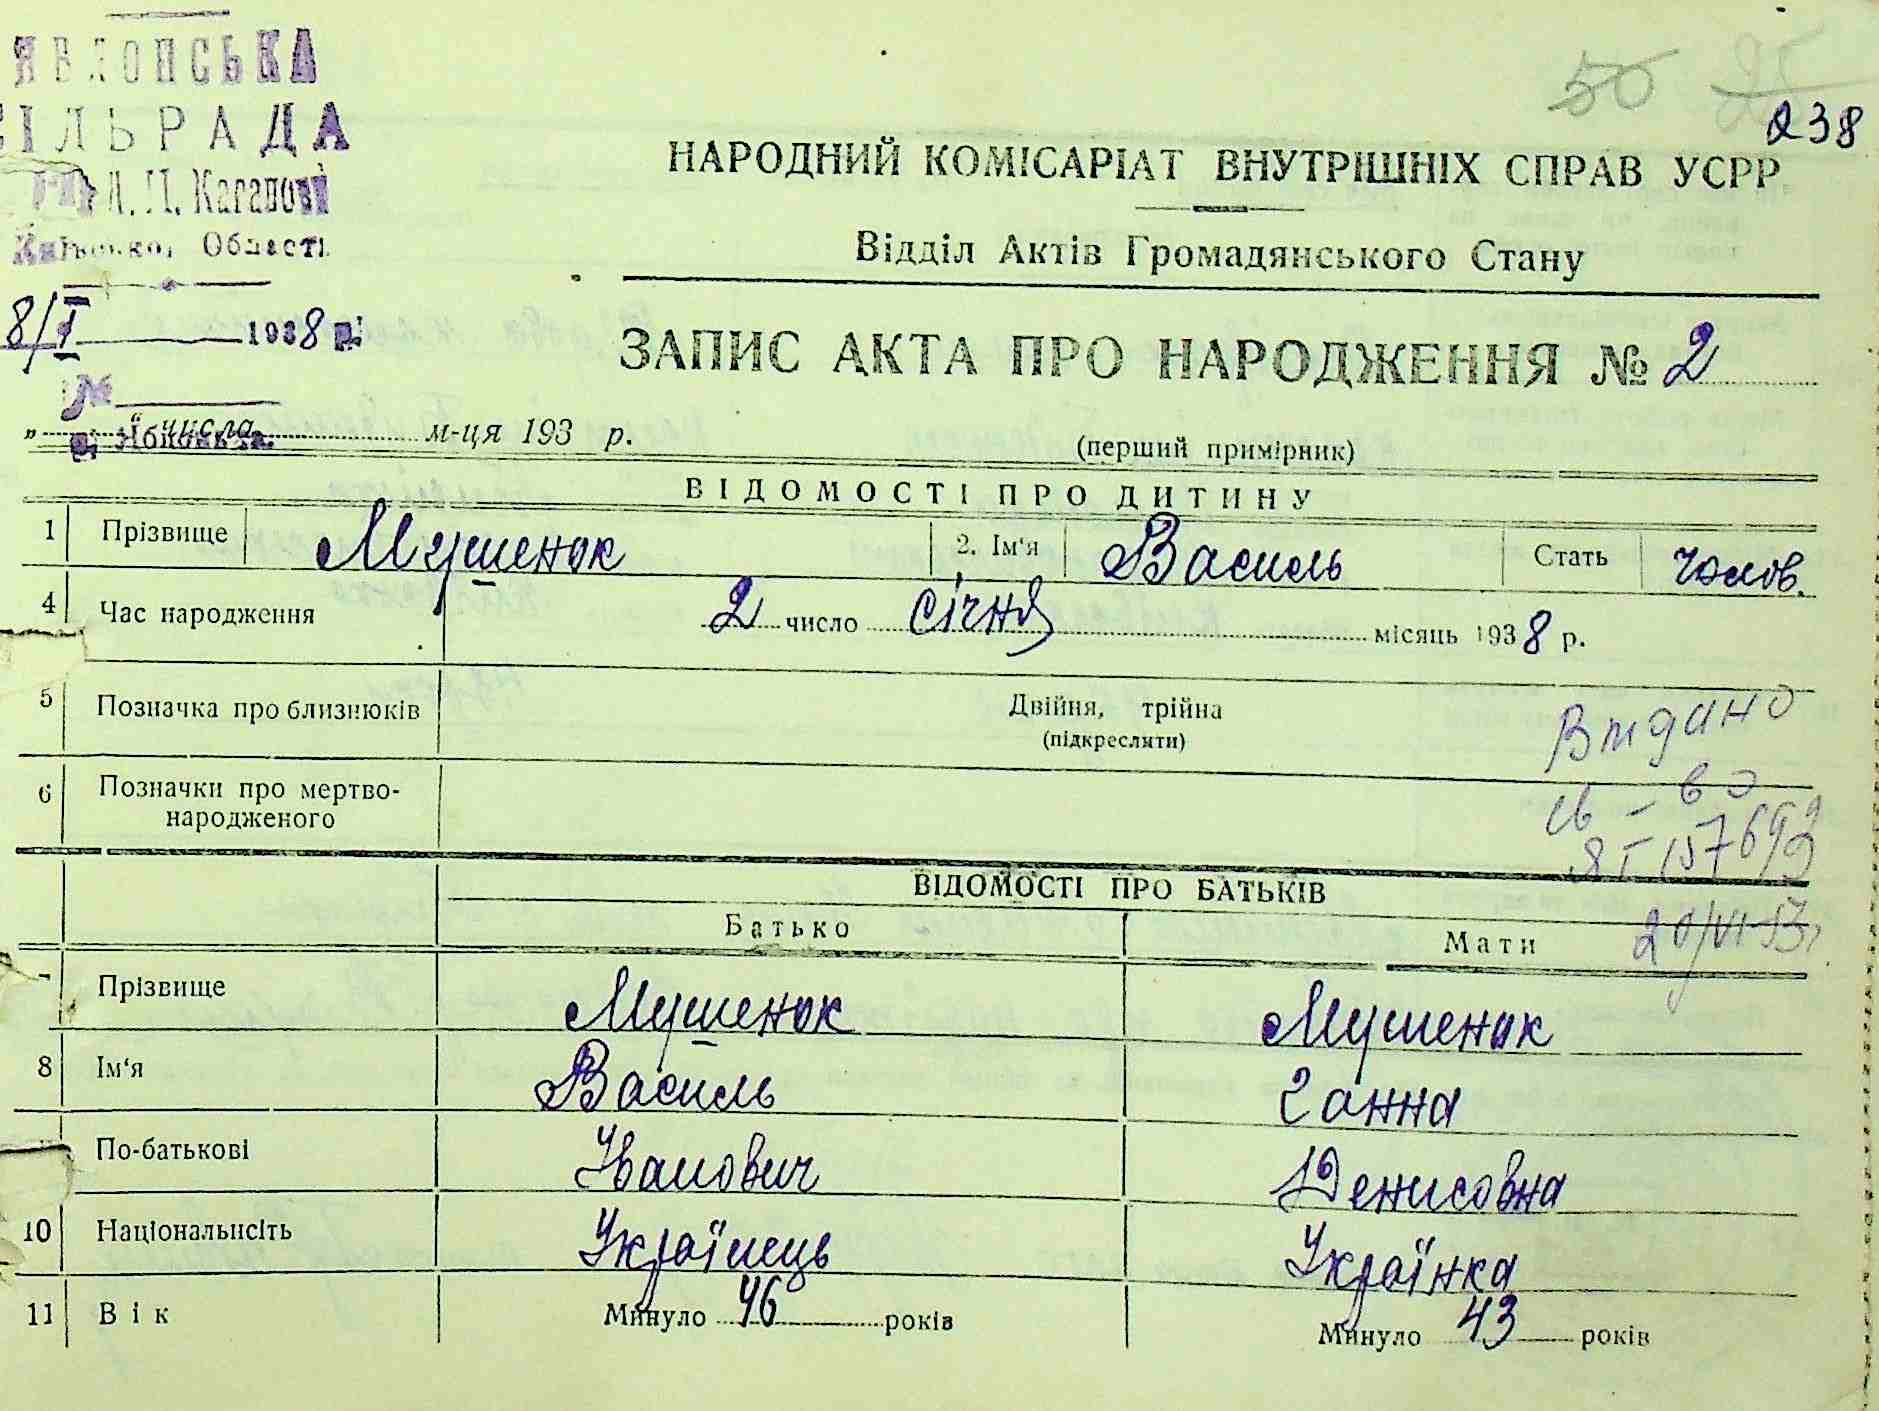 ЯБЛОНСЬКА
СІЛЬРАДА
Л. П. Каганові
Київської Області
8/I 1938 р.
№
с. Яблонька.
50 25
238
НАРОДНИЙ КОМІСАРІАТ ВНУТРІШНІХ СПРАВ УСРР
Відділ Актів Громадянського Стану
ЗАПИС АКТА ПРО НАРОДЖЕННЯ № 2
„ “ числа м-ця 193 р. (перший примірник)
ВІДОМОСТІ ПРО ДИТИНУ
1 Прізвище Мушенок 2. Ім'я Василь Стать чолов.
4 Час народження 2 число січня місяць 1938 р.
5 Позначка про близнюків Двійня, трійна
(підкреслити)
6 Позначки про мертво-
народженого
Видано
св-во
20/VI-53
ВІДОМОСТІ ПРО БАТЬКІВ
Батько Мати
7 Прізвище Мушенок Мушенок
8 Ім'я Василь Ганна
По-батькові Іванович Денисовна
10 Національнсіть Українець Українка
11 Вік Минуло 46 років Минуло 43 років